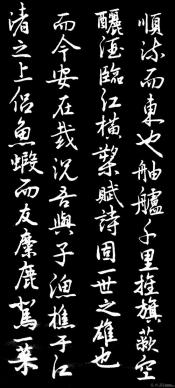 順流而東也舳艫千里旌旗蔽空
釃酒臨江橫槊賦詩固一世之雄也
而今安在哉況吾與子漁樵于江
渚之上侶魚蝦而友麋鹿駕一葉